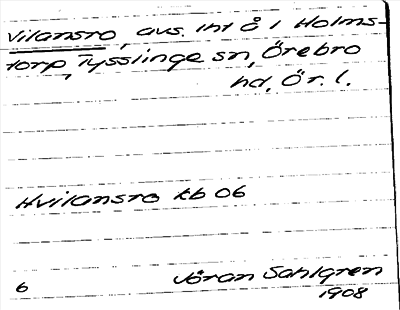 Vilansro, avs. int å 1 Holms-
torp, Tysslinge sn, Örebro
hd, Ör. l.
Hvilansro kb 06
6 Jöran Sahlgren
1908